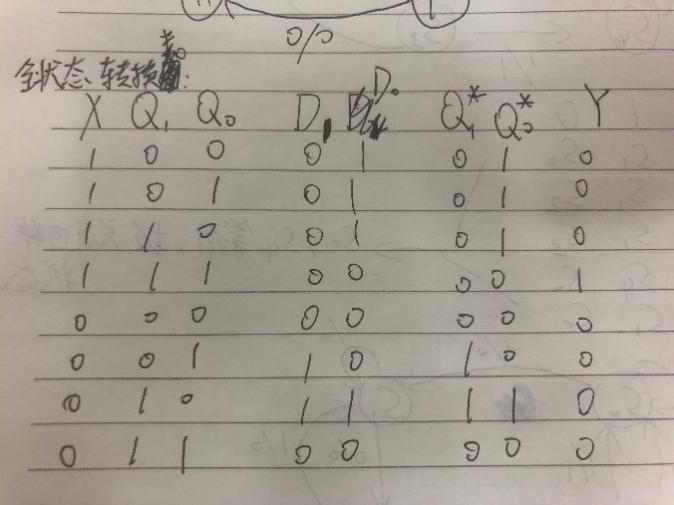 11 1
0/0
全状态转换表:
X Q₁ Q₀ D₁ D₀ Q₁* Q₀* Y
1 0 0 0 1 0 1 0
1 0 1 0 1 0 1 0
1 1 0 0 1 0 1 0
1 1 1 0 0 0 0 1
0 0 0 0 0 0 0 0
0 0 1 1 0 1 0 0
0 1 0 1 1 1 1 0
0 1 1 0 0 0 0 0